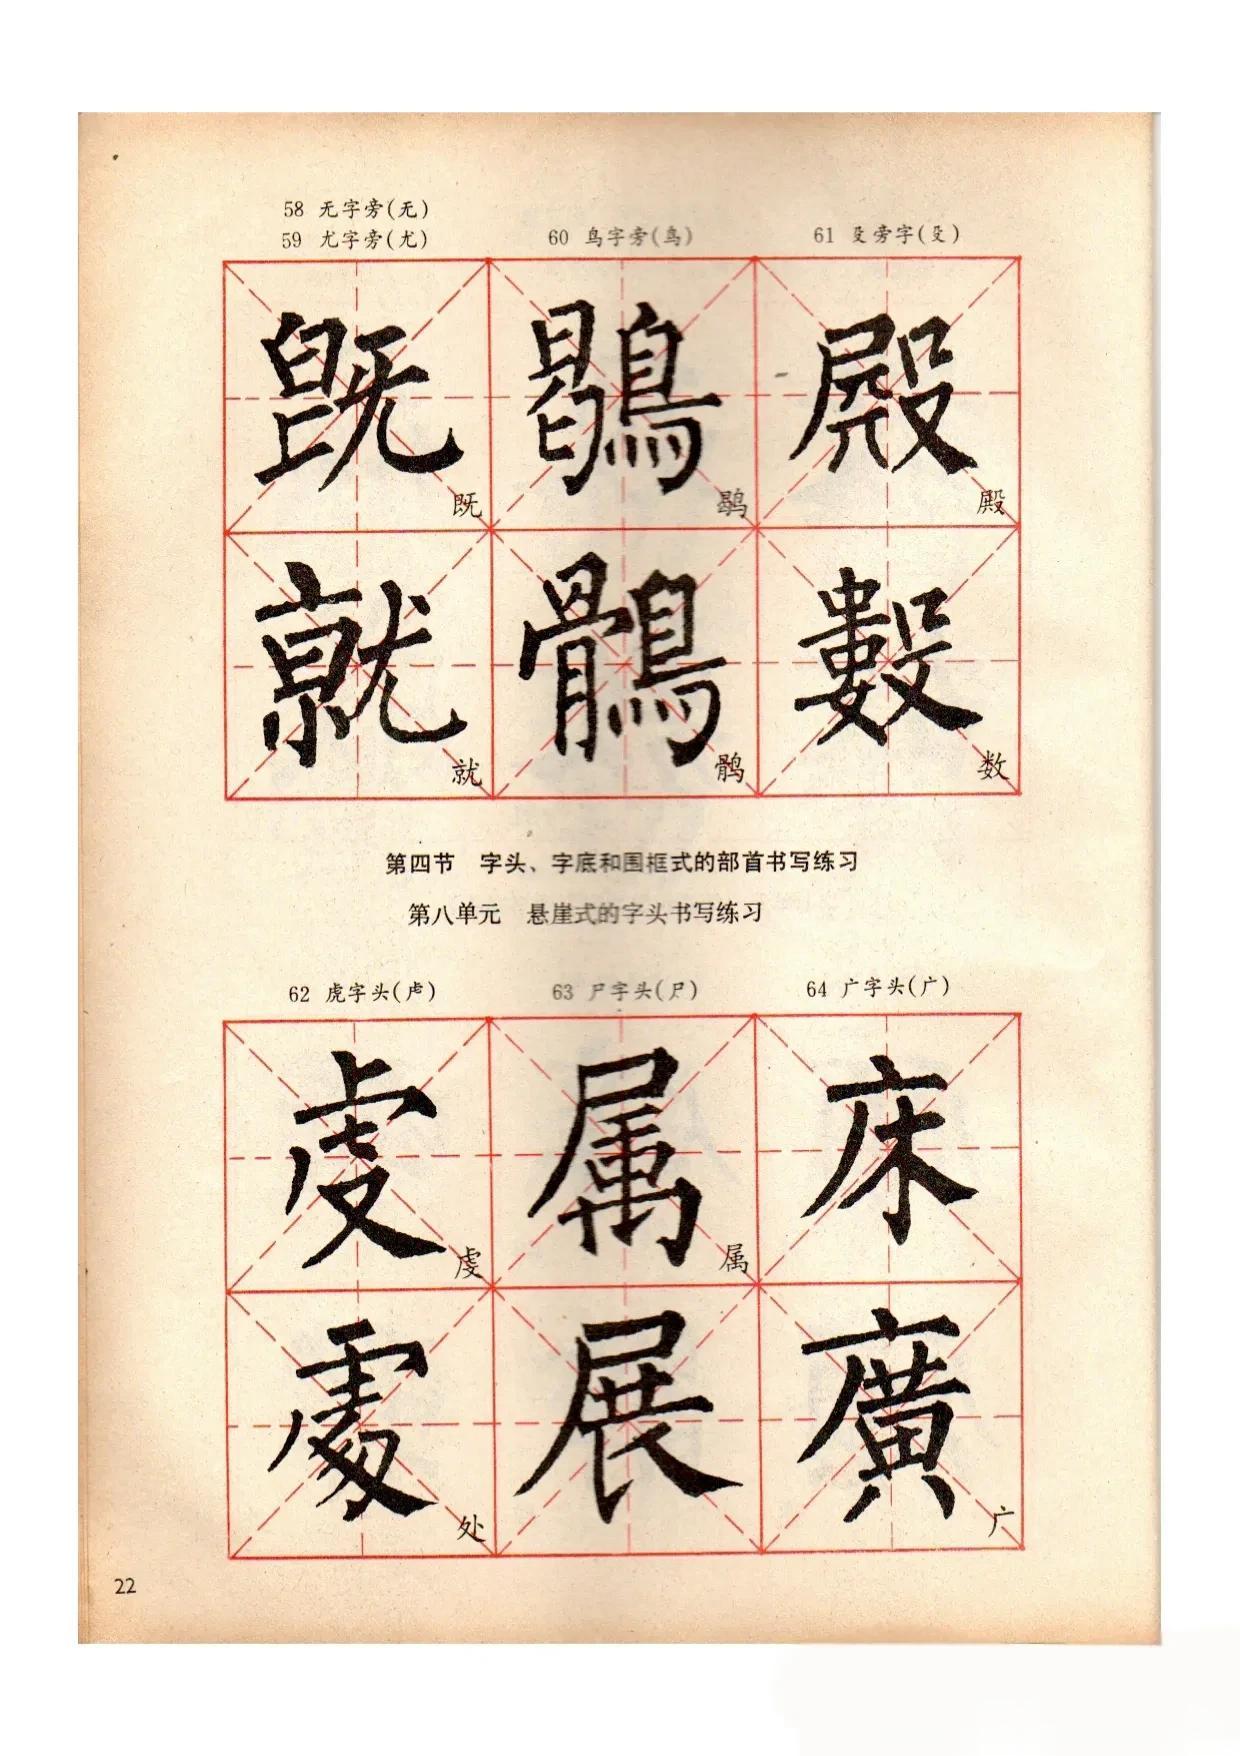 58 无字旁(无)
59 尤字旁(尤)
60 鸟字旁(鸟)
61 殳旁字(殳)
既 鶡 殿
既 鹖 殿
就 鶻 數
就 鹘 数
第四节 字头、字底和围框式的部首书写练习
第八单元 悬崖式的字头书写练习
62 虎字头(虍)
63 尸字头(尸)
64 广字头(广)
虔 属 床
虔 属
處 展 廣
处 广
22